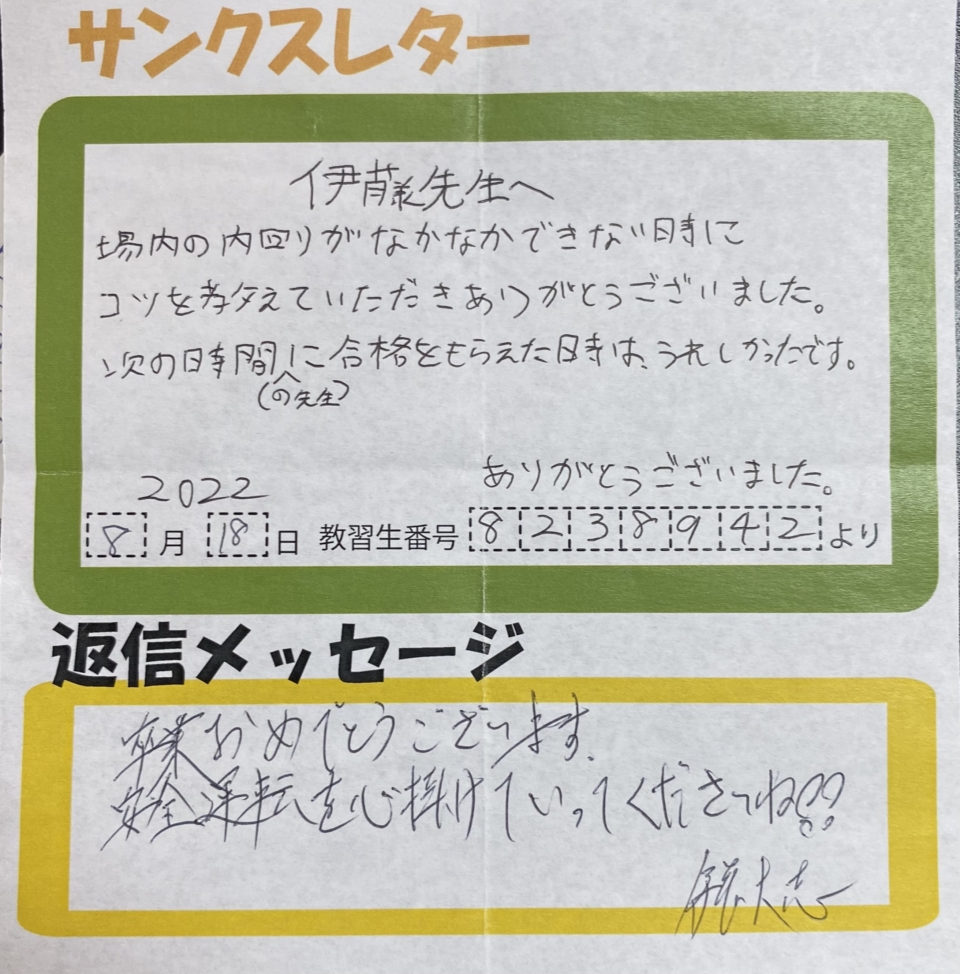 サンクスレター
伊藤先生へ
場内の内回りがなかなかできない時に
コツを教えていただきありがとうございました。
次の時間に合格をもらえた時は、うれしかったです。
(の先生)
ありがとうございました。
2022
8月18日 教習生番号 8238942より
返信メッセージ
卒業おめでとうございます。
安全運転を心掛けていってくださいね!!
大志